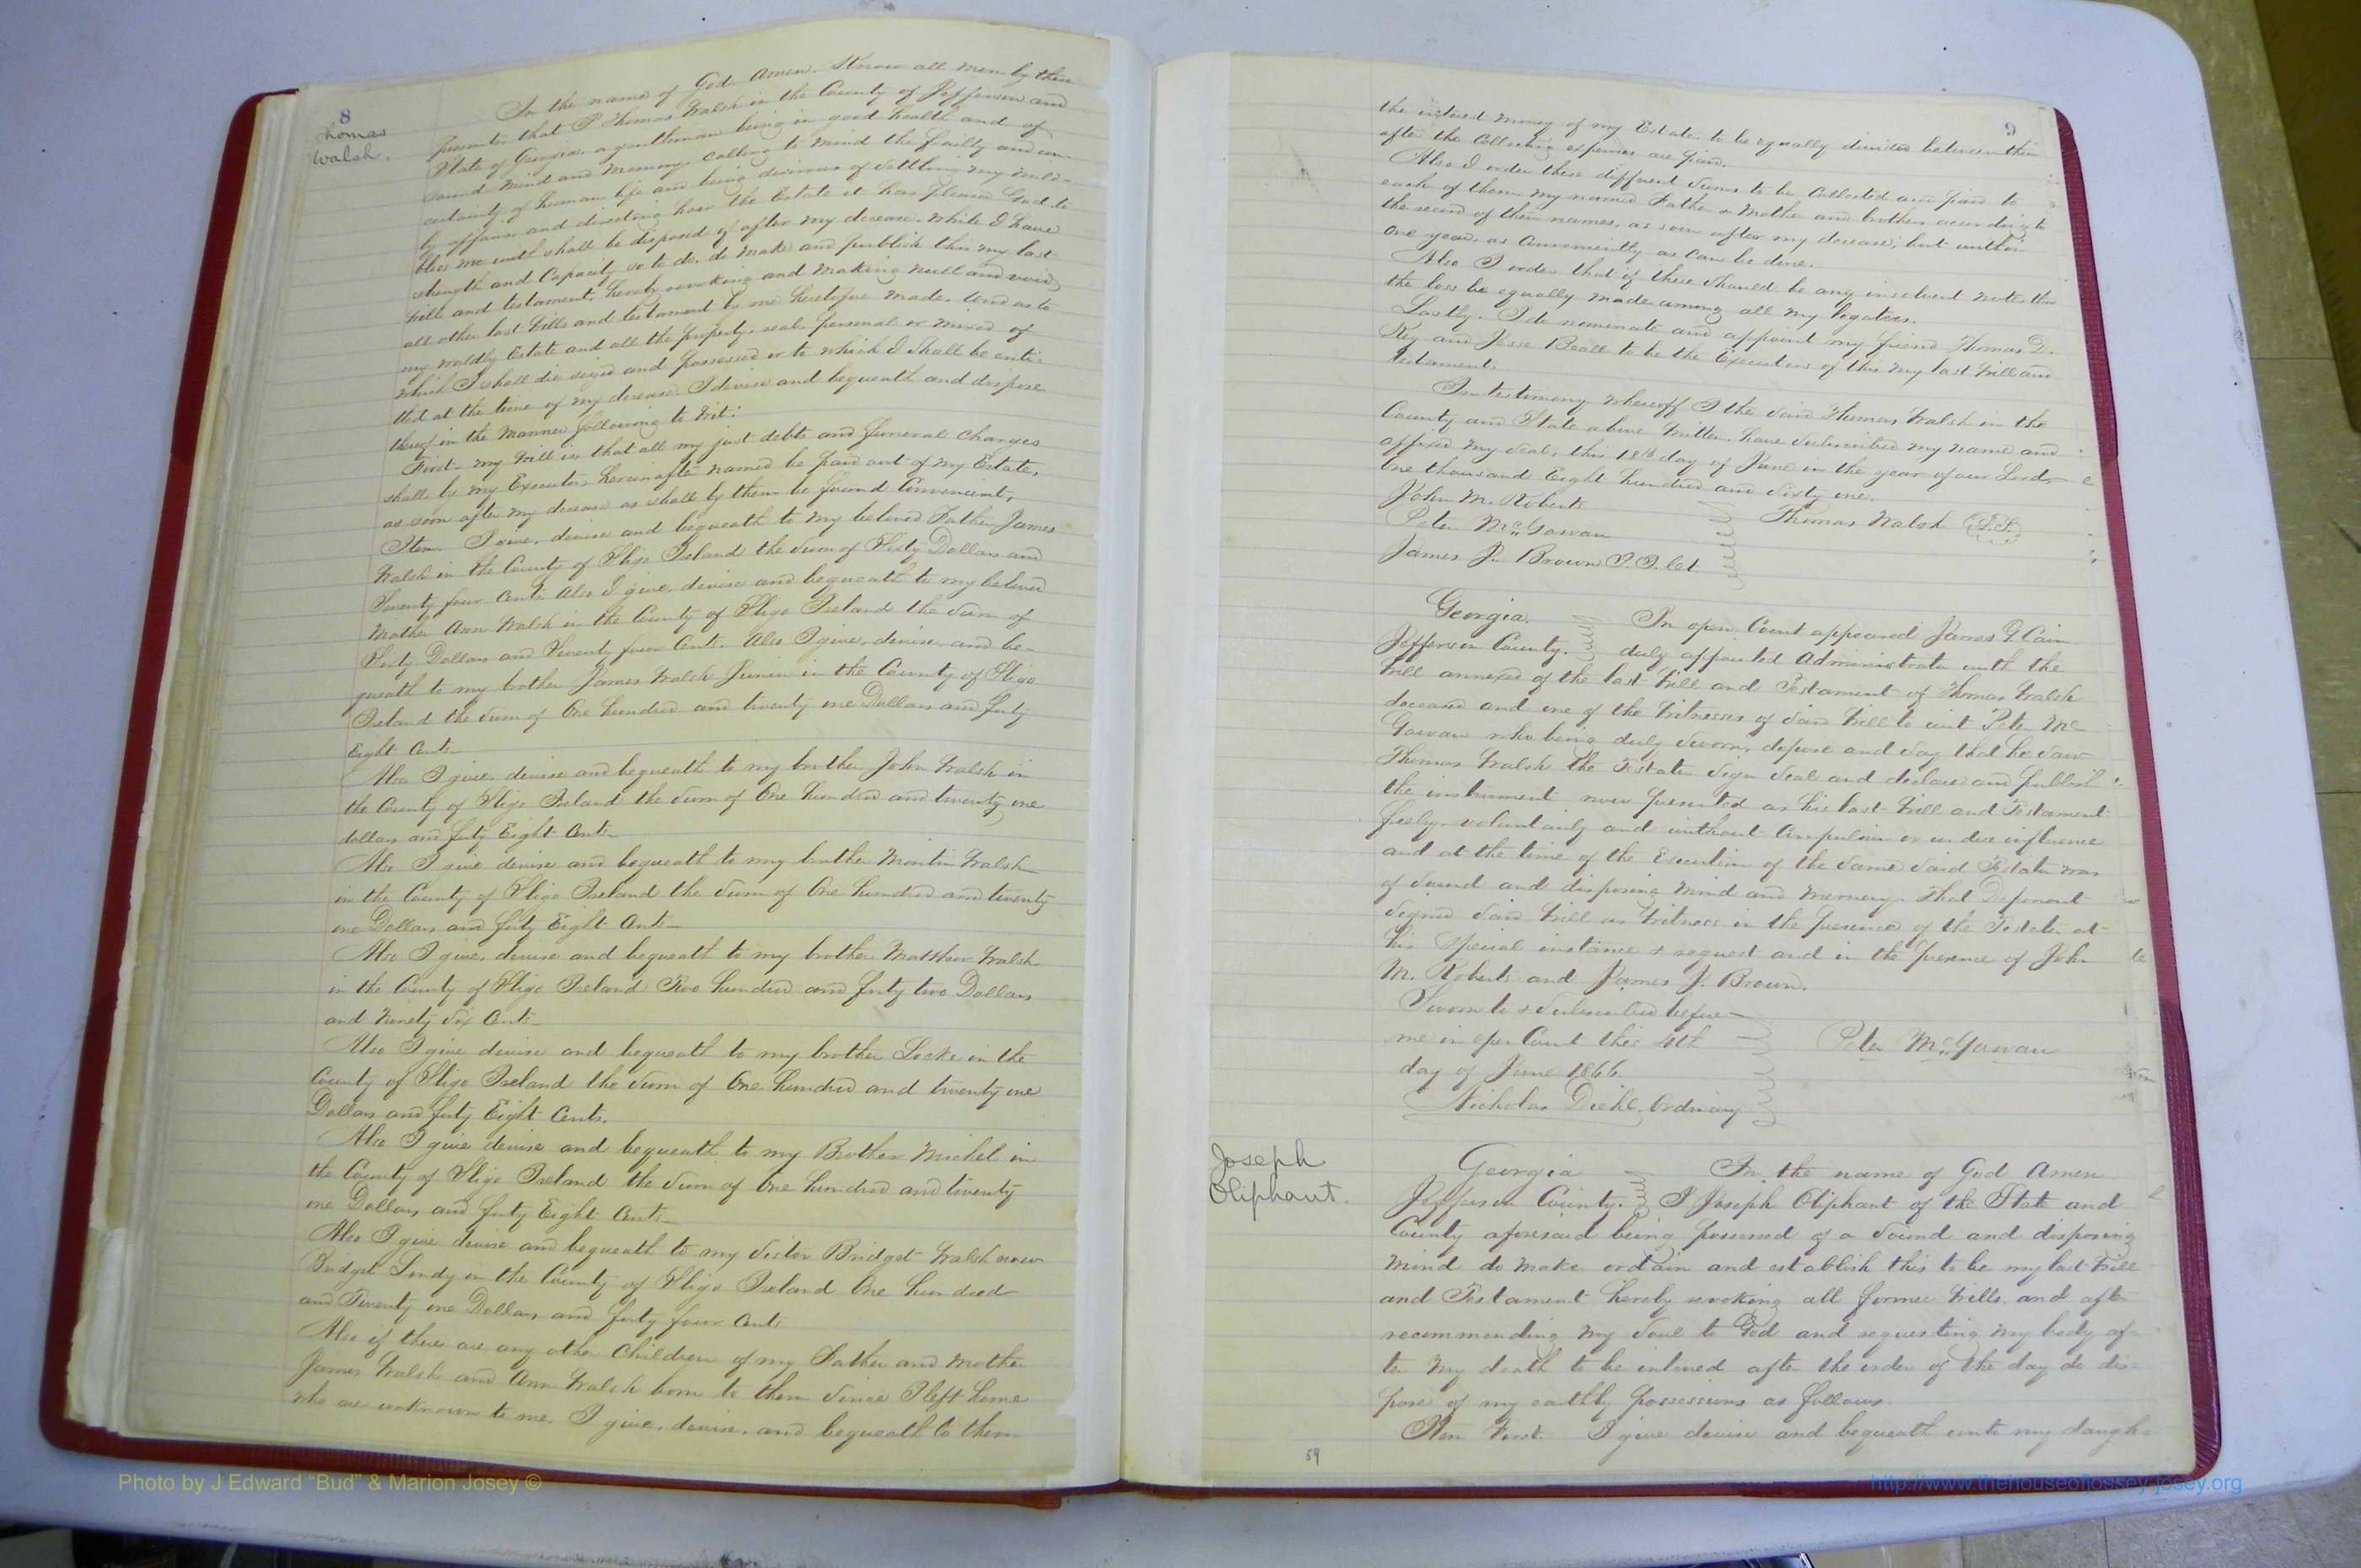 8
Thomas
Walsh.
In the name of God Amen. Know all men by these
presents that I Thomas Walsh in the County of Jefferson and
State of Georgia, a gentleman being in good health and of
sound mind and memory. Calling to mind the frailty and un-
certainty of human life and being desirous of settling my world-
ly affairs and directing how the Estate it has pleased God to
bless me with shall be disposed of after my decease. While I have
strength and Capacity so to do. do make and publish this my last
Will and testament, hereby revoking and making null and void
all other last Wills and testament by me heretofore made. And as to
my worldly Estate and all the property, real, personal or mixed of
which I shall die seized and possessed or to which I shall be enti-
tled at the time of my decease. I devise and bequeath and dispose
thereof in the manner following to Wit:
First- my Will is, that all my just debts and funeral charges
shall by my Executors hereinafter named be paid out of my Estate,
as soon after my decease as shall by them be found Convenient,
Item. I give, devise and bequeath to my beloved Father James
Walsh in the County of Sligo Ireland the Sum of Sixty Dollars and
Seventy four Cents. Also I give, devise and bequeath to my beloved
Mother Ann Walsh in the County of Sligo Ireland the Sum of
Sixty Dollars and Seventy four Cents. Also I give, devise, and be-
queath to my brother James Walsh Junior in the County of Sligo
Ireland the Sum of One hundred and twenty one Dollars and forty
Eight Cents-
Also I give, devise and bequeath to my brother John Walsh in
the County of Sligo Ireland the Sum of One hundred and twenty one
dollars and forty Eight Cents-
Also I give devise and bequeath to my brother Martin Walsh
in the County of Sligo Ireland the Sum of One hundred and twenty
one Dollars and forty Eight Cents-
Also I give, devise and bequeath to my brother Matthew Walsh
in the County of Sligo Ireland Two hundred and forty two Dollars
and Ninety Six Cents-
Also I give devise and bequeath to my brother Locke in the
County of Sligo Ireland the Sum of One hundred and twenty one
Dollars and forty Eight Cents.
Also I give devise and bequeath to my Brother Michel in
the County of Sligo Ireland the Sum of One hundred and twenty
one Dollars and forty Eight Cents-
Also I give devise and bequeath to my Sister Bridget Walsh now
Bridget Lindy in the County of Sligo Ireland One hundred
and Twenty one Dollars and forty four Cents
Also if there are any other Children of my Father and Mother
James Walsh and Ann Walsh born to them Since I left home
who are unknown to me, I give, devise, and bequeath to them
9
the interest money of my Estate, to be equally divided between them
after the Collecting expenses are paid.
Also I order these different Sums to be Collected and paid to
each of them, my named Father & Mother and brothers according to
the record of their names, as soon after my decease; but within
One year, as Conveniently as Can be done.
Also I order that if there Should be any insolvent notes, then
the loss be equally made among all my legatees.
Lastly. I do nominate and appoint my friend Thomas D.
Key and Jesse Beall to be the Executors of this my last Will and
Testament.
In testimony whereoff I the Said Thomas Walsh in the
County and State above Written, have Subscribed my name and
affixed my Seal, this 18th day of June in the year of our Lord,
One thousand Eight hundred and Sixty one.
John M. Roberts
Peter McGowan
Thomas Walsh (L.S.)
James J. Brown
Georgia.
Jefferson County.
In open Court appeared James G. Cain
duly appointed Administrator with the
Will annexed of the last Will and Testament of Thomas Walsh
deceased and one of the Witnesses of Said Will to wit Peter Mc
Gowan who being duly Sworn, depose and Say that he Saw
Thomas Walsh the Testator Sign Seal and declare and publish
the instrument now presented as his last Will and Testament
freely, voluntarily and without Compulsion or undue influence
and at the time of the Execution of the Same Said Testator was
of Sound and disposing Mind and Memory. That Deponent
Signed Said Will as Witness in the presence of the Testator at
his Special instance & request and in the presence of John
M. Roberts and James J. Brown.
Sworn to & Subscribed before
me in open Court this 4th
day of June 1866
Peter McGowan
Nicholas Diehl, Ordinary
Joseph
Oliphant.
Georgia
Jefferson County.
In the name of God Amen.
I Joseph Oliphant of the State and
County aforesaid being possessed of a Sound and disposing
Mind do make ordain and establish this to be my last Will
and Testament hereby revoking all former Wills. and aft
recommending my Soul to God and requesting my body af-
ter my death to be intered after the order of the day do dis-
pose of my earthly possessions as follows.
Item First. I give devise and bequeath unto my daugh-
59
Photo by J Edward "Bud" & Marion Josey ©
http://www.thehouseofjossey-josey.org